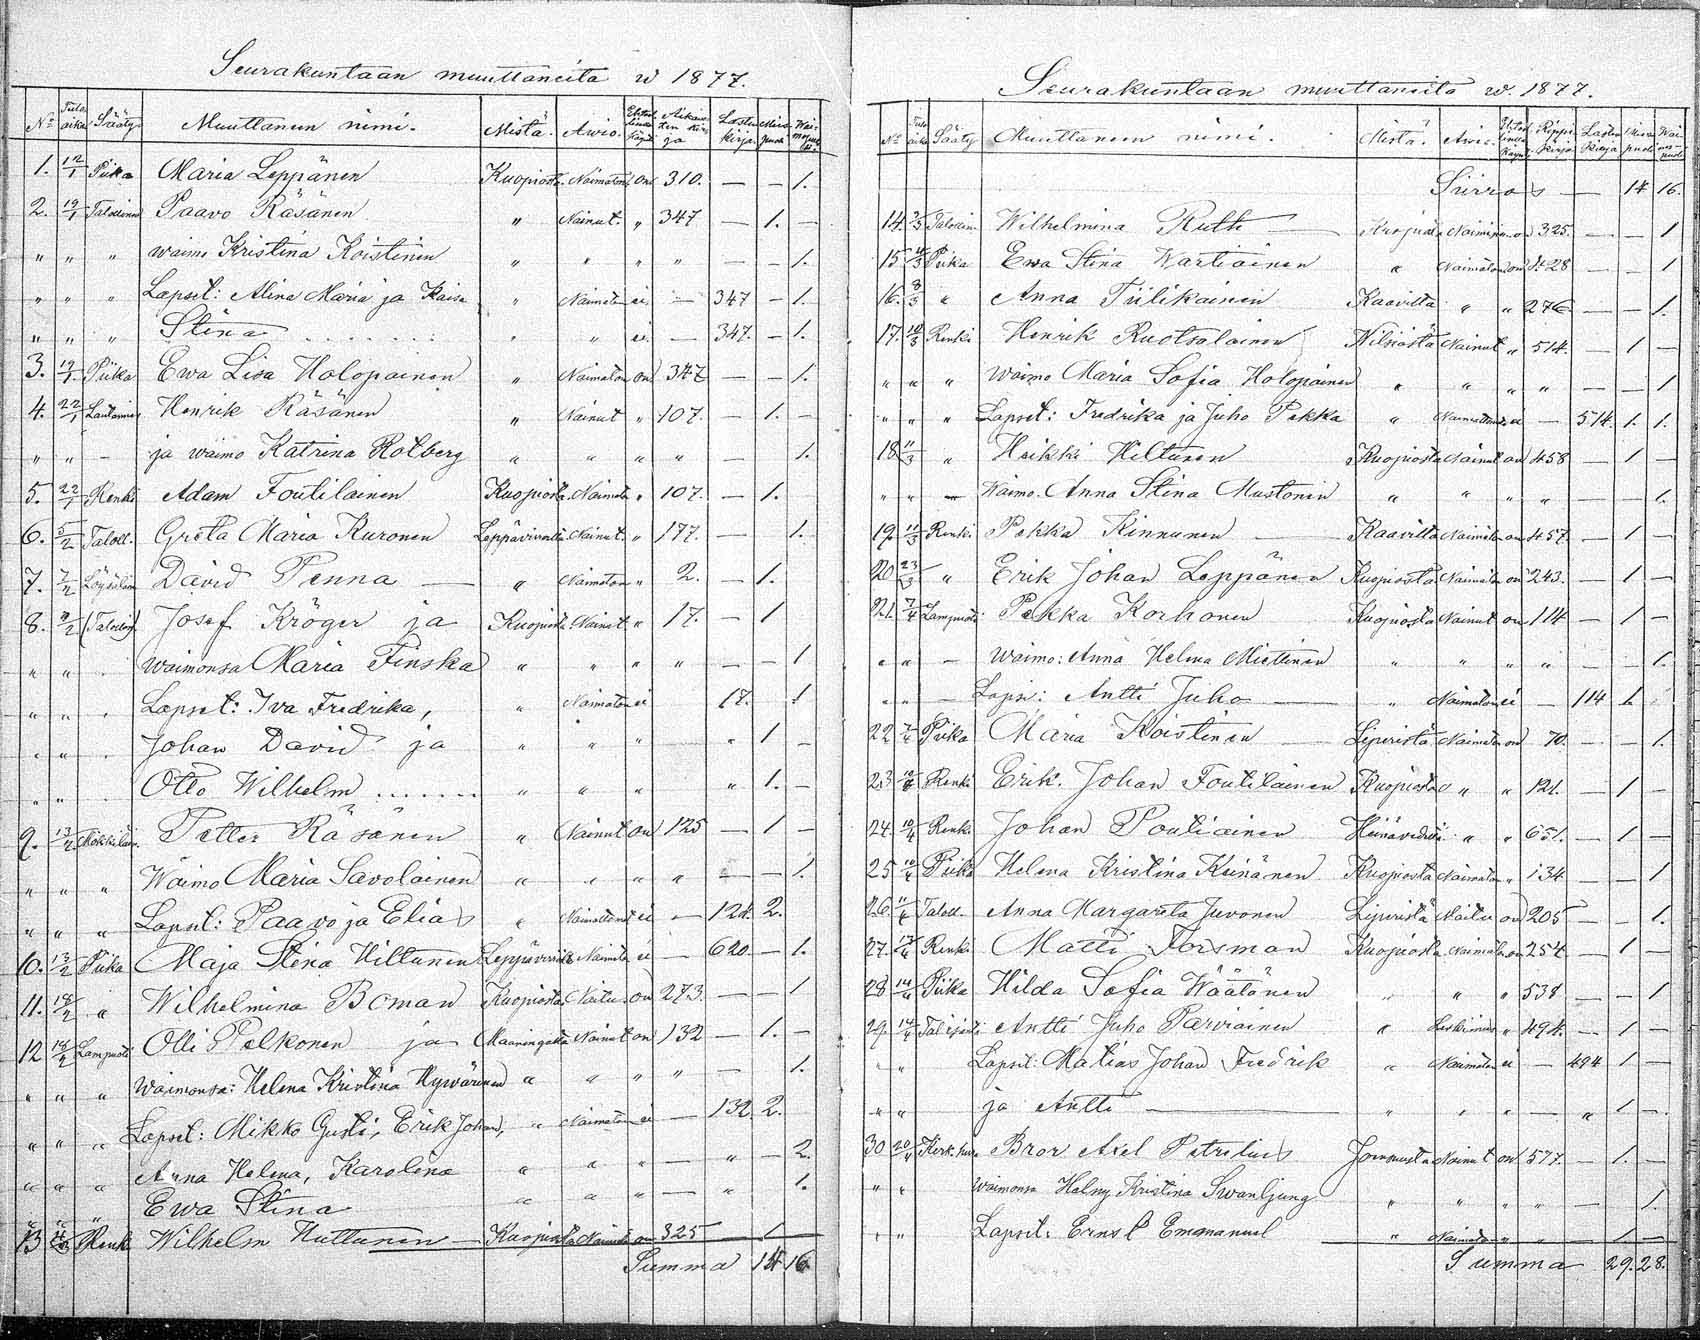 Seurakuntaan muuttaneita w 1877.
No Tulo aika Sääty Muuttanen nimi. Mistä. Awio. Lasten kirja. Mies puoli
1. 12/1 Piika Maria Leppänen Kuopiosta Naimaton on 310. — — 1.
2. 19/1 Talollinen Paavo Räsänen " Nainut. " 347 — 1. —
" " " waimo Kristina Koistinen " " " " — — 1.
" " " Lapset: Alina Maria ja Kaisa " Naimaton ei — 347 — 1.
" " " Stina " " ei — 347. — 1.
3. 19/1 Piika Ewa Lisa Holopainen " Naimaton on 347 — — 1.
4. 22/1 Henrik Räsänen " Nainut " 107. — 1. —
" " — ja waimo Katrina Rotberg " " " " — 1.
5. 22/1 Renki Adam Foutilainen Kuopiosta Naimaton " 107. — 1.
6. 5/2 Taloll. Greta Maria Kuronen Leppävirralta Nainut. " 177. — 1.
7. 7/2 David Penna — " Naimaton " 2. — 1.
8. /2 Josef Kröger ja Kuopiosta Nainut " 17. — 1
" " . waimonsa Maria Finska " " " " — — 1
" " . Lapset: Iva Fredrika, " Naimaton ei 17. 1
" " . Johan David ja " " " " 1 —
" " . Otto Wilhelm " " " " 1. —
9. 13/2 Petter Räsänen " Nainut on 125 — 1 —
" " " Waimo Maria Savolainen " " " " — 1.
" " " Lapset: Paavo ja Elias " ei — 124. 2.
10. 13/2 Piika Maja Stina Hiltunen Leppävirralta Naimaton ei — 620. — 1.
11. 18/2 " Wilhelmina Boman Kuopiosta on 273. — — 1
12 18/2 Lampuoti Olli Pelkonen ja Maaningalta Nainut on 132 — 1. —
" " " waimonsa: Helena Kristina Hywärinen " " " " — 1.
" " " Lapset: Mikko Gusti, Erik Johan, " Naimaton ei — 132. 2.
" " " Anna Helena, Karolina " " " — " — 2.
" " " Ewa Stina " " " — " 1.
13 Renk Wilhelm Huttunen — Kuopiosta Naimaton on 325 — 1 —
Summa 14 16
Seurakuntaan muuttaneita w. 1877.
No Tulo aika Sääty Muuttanen nimi. Mistä. Awio. Rippi kirja Lasten kirja Mies puoli
Siirros — 14 16.
14. /3 Talollinen Wilhelmina Ruth — Kuopiosta on 325. — — 1
15 4/3 Piika Ewa Stina Wartiainen " Naimaton on 428 — — 1
16. 8/3 " Anna Tiilikainen Kaavilta " " 276. — — 1.
17. 10/3 Renki Henrik Ruotsalainen Nilsiästä Nainut " 514. — 1 —
" " " waimo Maria Sofia Holopainen " " " " — — 1
" " " Lapset: Fredrika ja Juho Pekka " ei — 514. 1. 1.
18 11/3 " Heikki Hiltunen Kuopiosta Nainut on 458 — 1 —
" " — Waimo. Anna Stina Mustonen " " " " — — 1.
19. 11/3 Renki Pekka Kinnunen — Kaavilta Naimaton on 457. — 1 —
20 23/3 " Erik Johan Leppänen Kuopiosta Naimaton on 243. — 1 —
21. 7/4 Lampuoti Pekka Korhonen Kuopiosta Nainut on 114 — 1 —
" " — Waimo: Anna Helena Miettinen " " " " — — 1.
" " — Lapsi: Antti Juho — " Naimaton ei — 114 1.
22 7/4 Piika Maria Koistinen — Liperistä Naimaton on 70. — — 1.
23 10/4 Renki Erik Johan Foutilainen Kuopiosta " " 121. — 1 —
24. 10/4 Renki Johan Poutiainen Heinävedeltä " " 651. — 1 —
25 10/4 Piika Helena Kristina Keinänen Kuopiosta Naimaton " 134 — — 1
26. 11/4 Taloll. Anna Margareta Juvonen Liperistä on 205 — — 1.
27. 12/4 Renki Matti Forsman Kuopiosta Naimaton on 254. — 1 —
28 14/4 Piika Hilda Sofia Wäätänen " " " 538 — — 1
29. 14/4 Antti Juho Parviainen " Leskimies " 494. — 1 —
" " Lapset: Matias Johan Fredrik " Naimaton ei — 494 1 —
" " ja Antti — " " " — " 1 —
30 20/4 Bror Axel Petrelius Nainut on 577. — 1. —
" " waimonsa Helmy Kristina Swanljung " " " " 1.
" " Lapset: Ernst Emmanuel " Naimaton " " — 1. —
Summa — 29. 28.